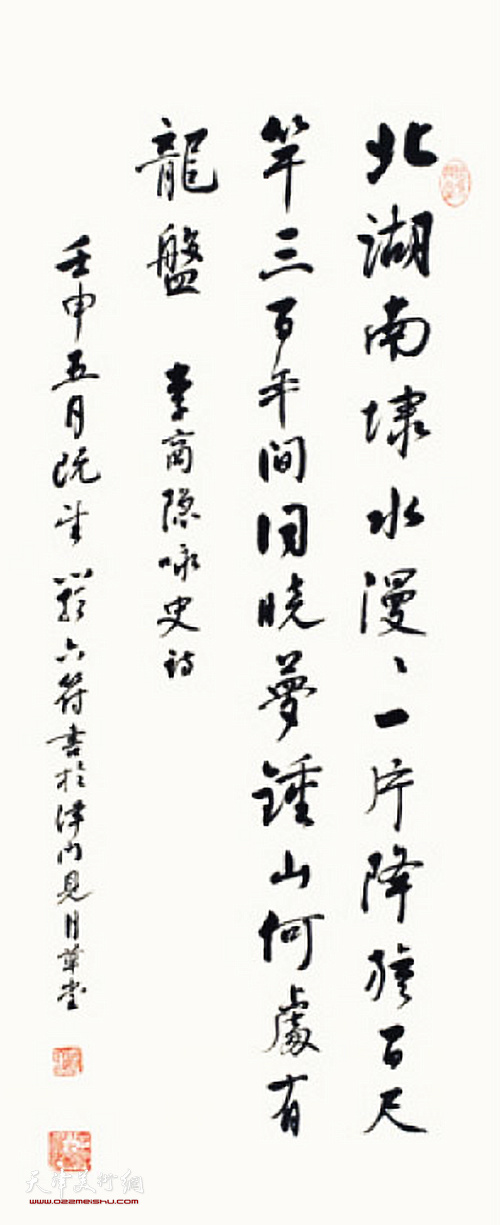 北湖南埭水漫〻一片降旗百尺
竿三百年间同晓夢鍾山何處有
龍盤 李商隐咏史诗
壬申五月既望 龚六符書於津門見日草堂
天津美术网
www.022meishu.com